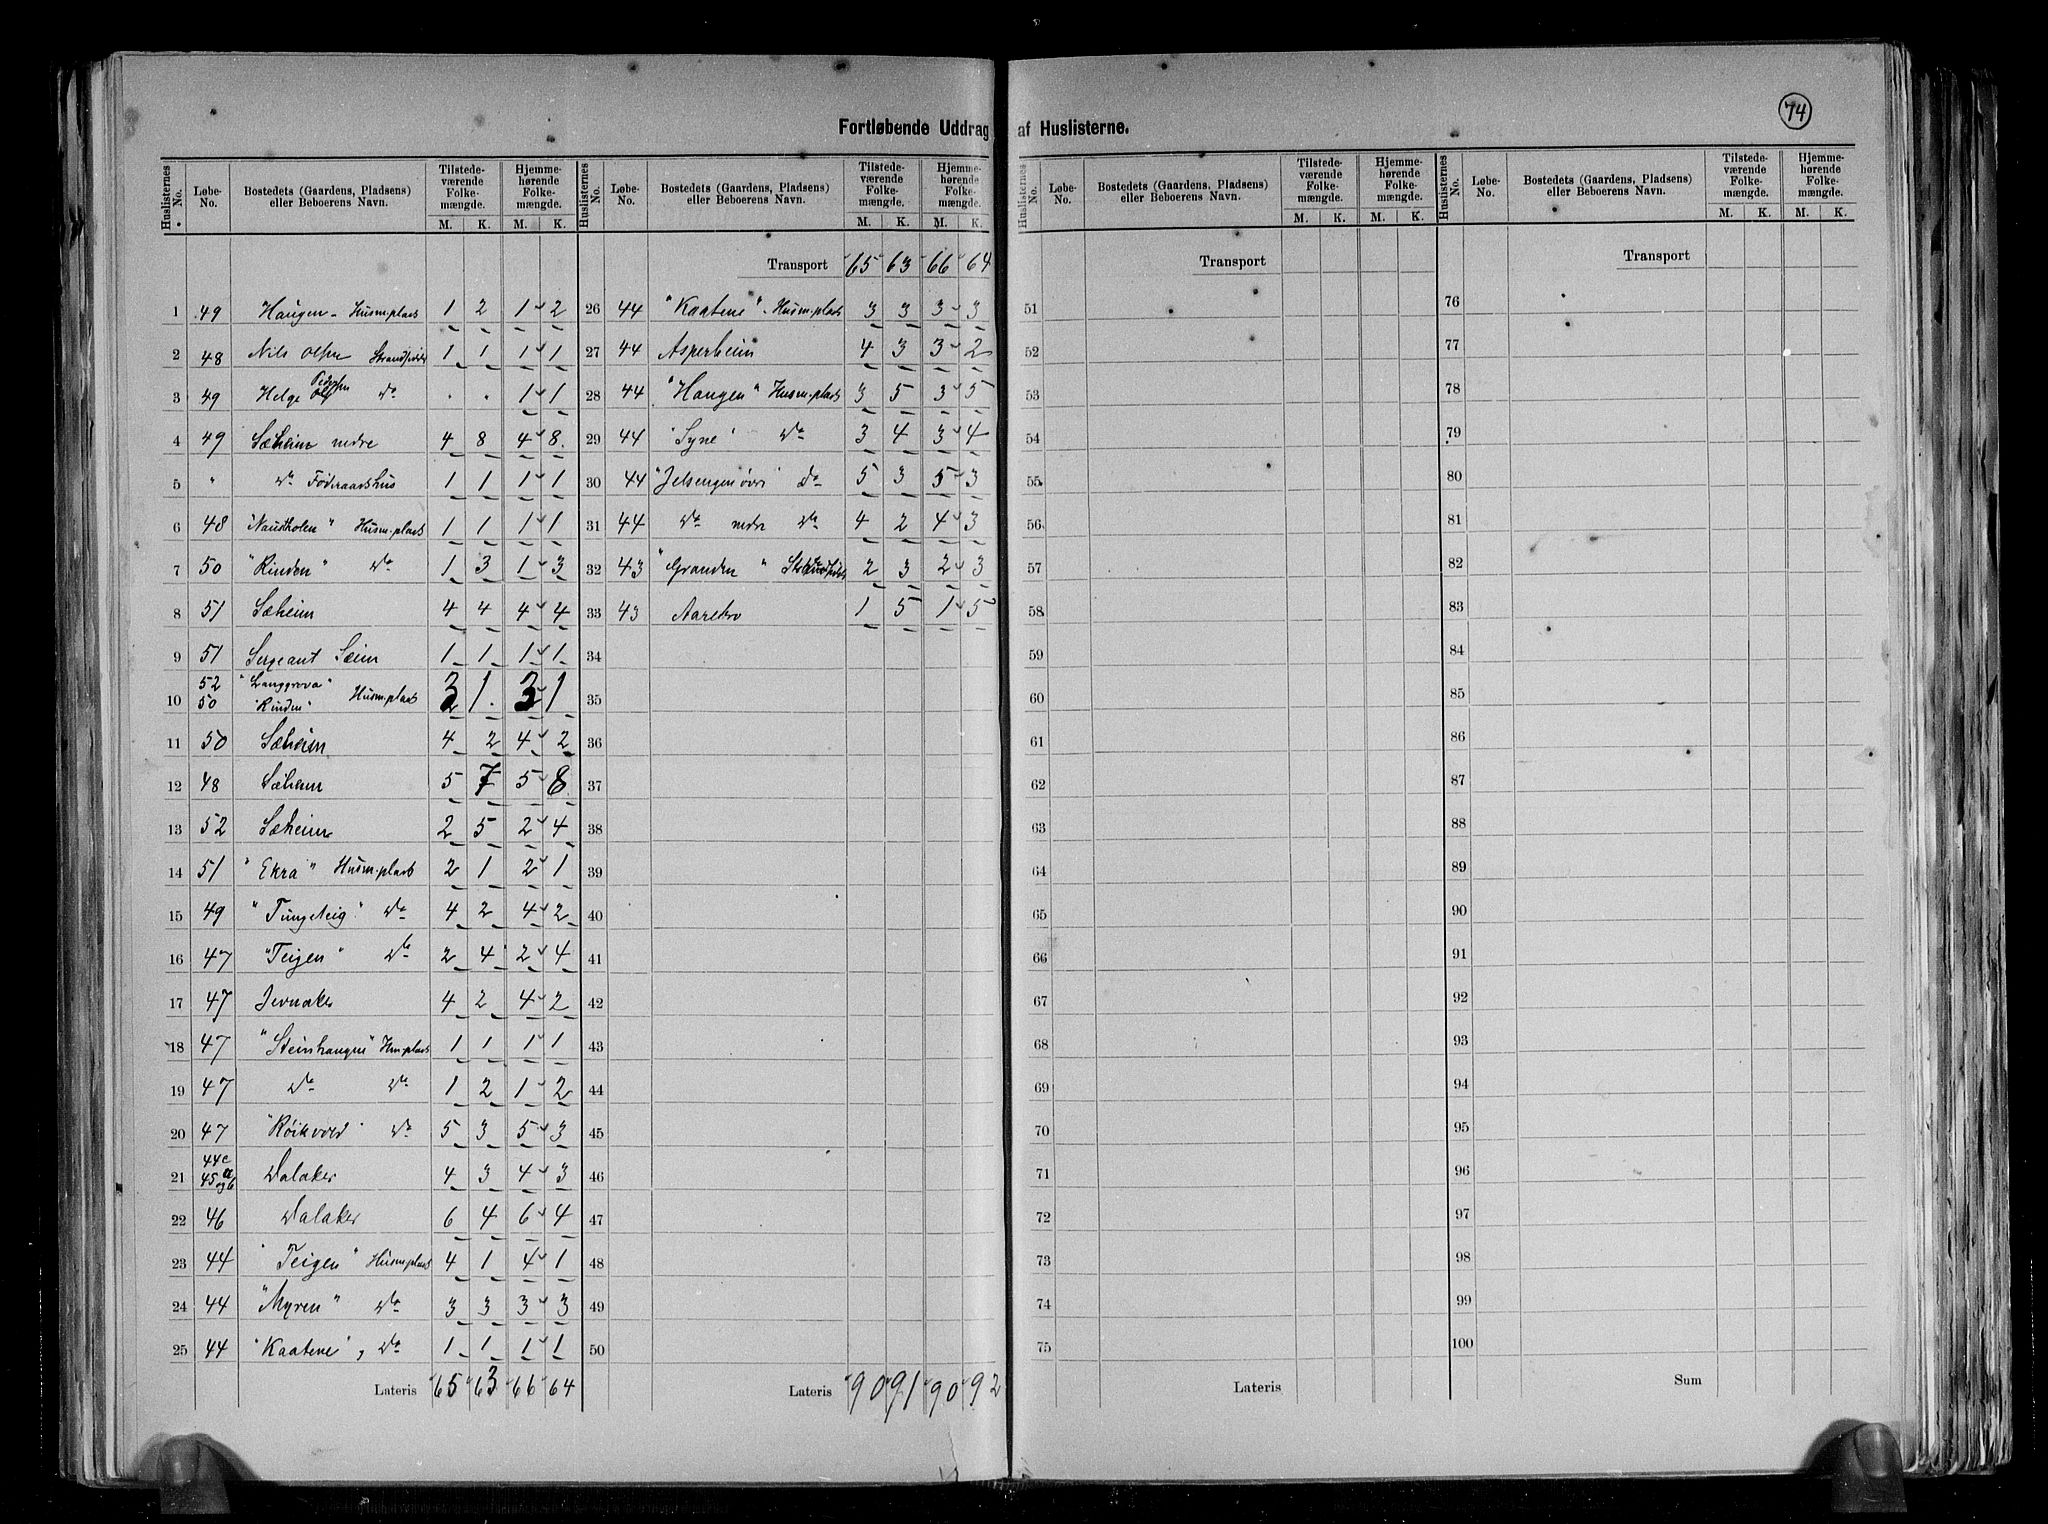 74
Fortløbende Uddrag af Huslisterne.
Huslisternes No. Løbe-No. Bostedets (Gaardens, Pladsens) eller Beboerens Navn. Tilstedeværende Folkemængde. M. K. Hjemmehørende Folkemængde. M. K.
1 49 Haugen - Husm.plads 1 2 1 2
2 48 Nils Olsen Strandsidder 1 1 1 1
3 49 Helge Pedersen do . . 1 1
4 49 Sæheim nedre 4 8 4 8
5 " do Føderaadshus 1 1 1 1
6 48 "Naustholen" Husm.plads 1 1 1 1
7 50 "Rinden" do 1 3 1 3
8 51 Sæheim 4 4 4 4
9 51 Sergeant Seim 1 1 1 1
10 52 50 "Langgrova" "Rinden" Husm.plads 3 1 3 1
11 50 Sæheim 4 2 4 2
12 48 Sæheim 5 7 5 8
13 52 Sæheim 2 5 2 4
14 51 "Ekra" Husm.plads 2 1 2 1
15 49 "Tungeteig" do 4 2 4 2
16 47 "Teigen" do 2 4 2 4
17 47 Jevnaker 4 2 4 2
18 47 "Steinhaugen" Hm.plads 1 1 1 1
19 47 do do 1 2 1 2
20 47 "Røikvold" do 5 3 5 3
21 44c 45a og b Dalaker 4 3 4 3
22 46 Dalaker 6 4 6 4
23 44 "Teigen" Husm.plads 4 1 4 1
24 44 "Myren" do 3 3 3 3
25 44 "Kaatene", do 1 1 1 1
Lateris 65 63 66 64
Huslisternes No. Løbe-No. Bostedets (Gaardens, Pladsens) eller Beboerens Navn. Tilstedeværende Folkemængde. M. K. Hjemmehørende Folkemængde. M. K.
Transport 65 63 66 64
26 44 "Kaatene" Husm.plads 3 3 3 3
27 44 Asperheim 4 3 3 2
28 44 "Haugen" Husm.plads 3 5 3 5
29 44 "Syne" do 3 4 3 4
30 44 "Jelsengen øvre" do 5 3 5 3
31 44 do nedre do 4 2 4 3
32 43 "Granden" Strandsidder 2 3 2 3
33 43 Aarebro 1 5 1 5
34
35
36
37
38
39
40
41
42
43
44
45
46
47
48
49
50
Lateris 90 91 90 92
Huslisternes No. Løbe-No. Bostedets (Gaardens, Pladsens) eller Beboerens Navn. Tilstedeværende Folkemængde. M. K. Hjemmehørende Folkemængde. M. K.
Transport
51
52
53
54
55
56
57
58
59
60
61
62
63
64
65
66
67
68
69
70
71
72
73
74
75
Lateris
Huslisternes No. Løbe-No. Bostedets (Gaardens, Pladsens) eller Beboerens Navn. Tilstedeværende Folkemængde. M. K. Hjemmehørende Folkemængde. M. K.
Transport
76
77
78
79
80
81
82
83
84
85
86
87
88
89
90
91
92
93
94
95
96
97
98
99
100
Sum